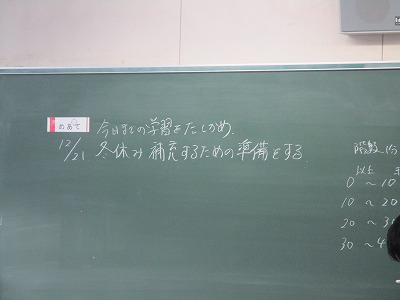 めあて
今日までの学習をたしかめ、
12/21
冬休み 補充するための準備をする
以上
0 〜 10
10 〜 20
20 〜 3
30 〜 4